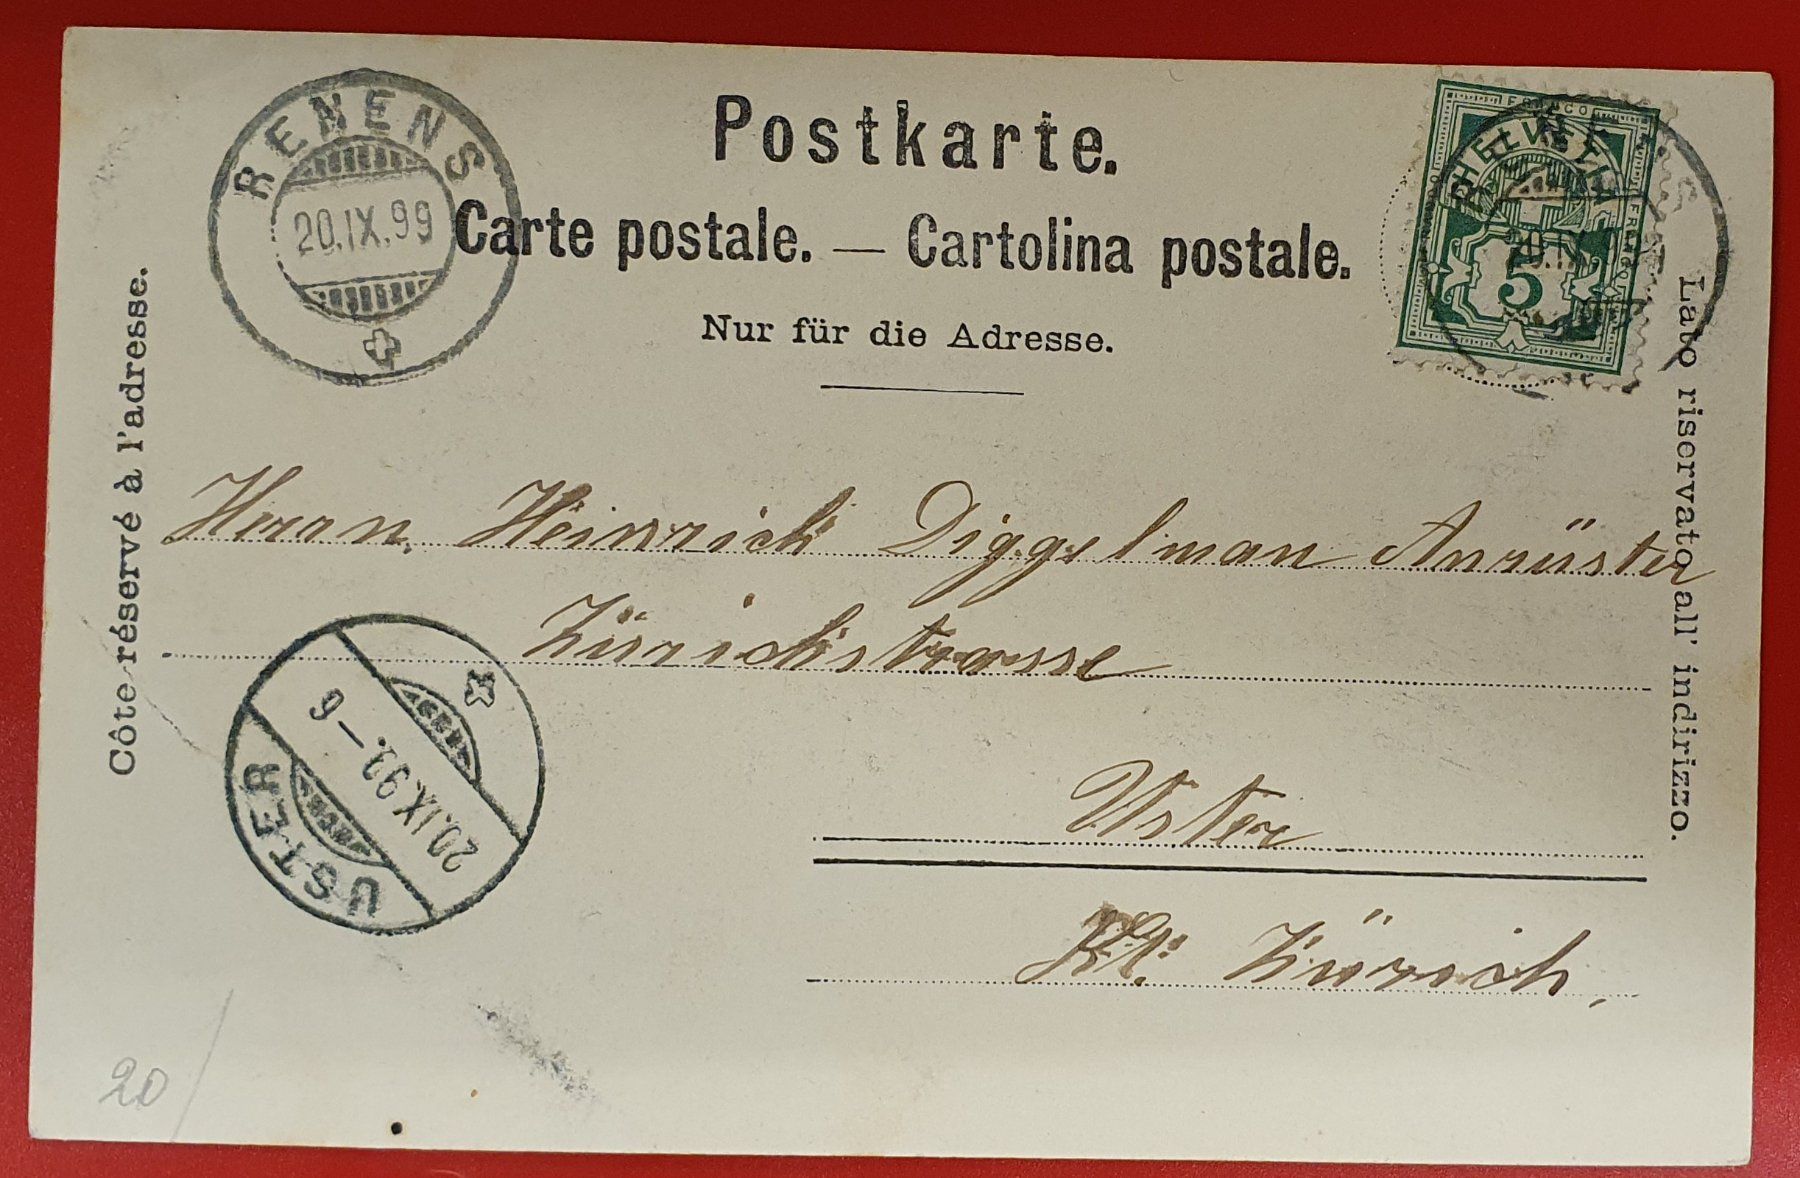 Postkarte.
Carte postale. — Cartolina postale.
Nur für die Adresse.
Côte réservé à l'adresse.
Lato riservato all' indirizzo.
RENENS
20.IX.99
FRANCO
HELVETIA
5
Herrn. Heinrich Diggelman
Zürichstrasse
Uster
Kt. Zürich,
USTER
20.IX.99.–9
20/